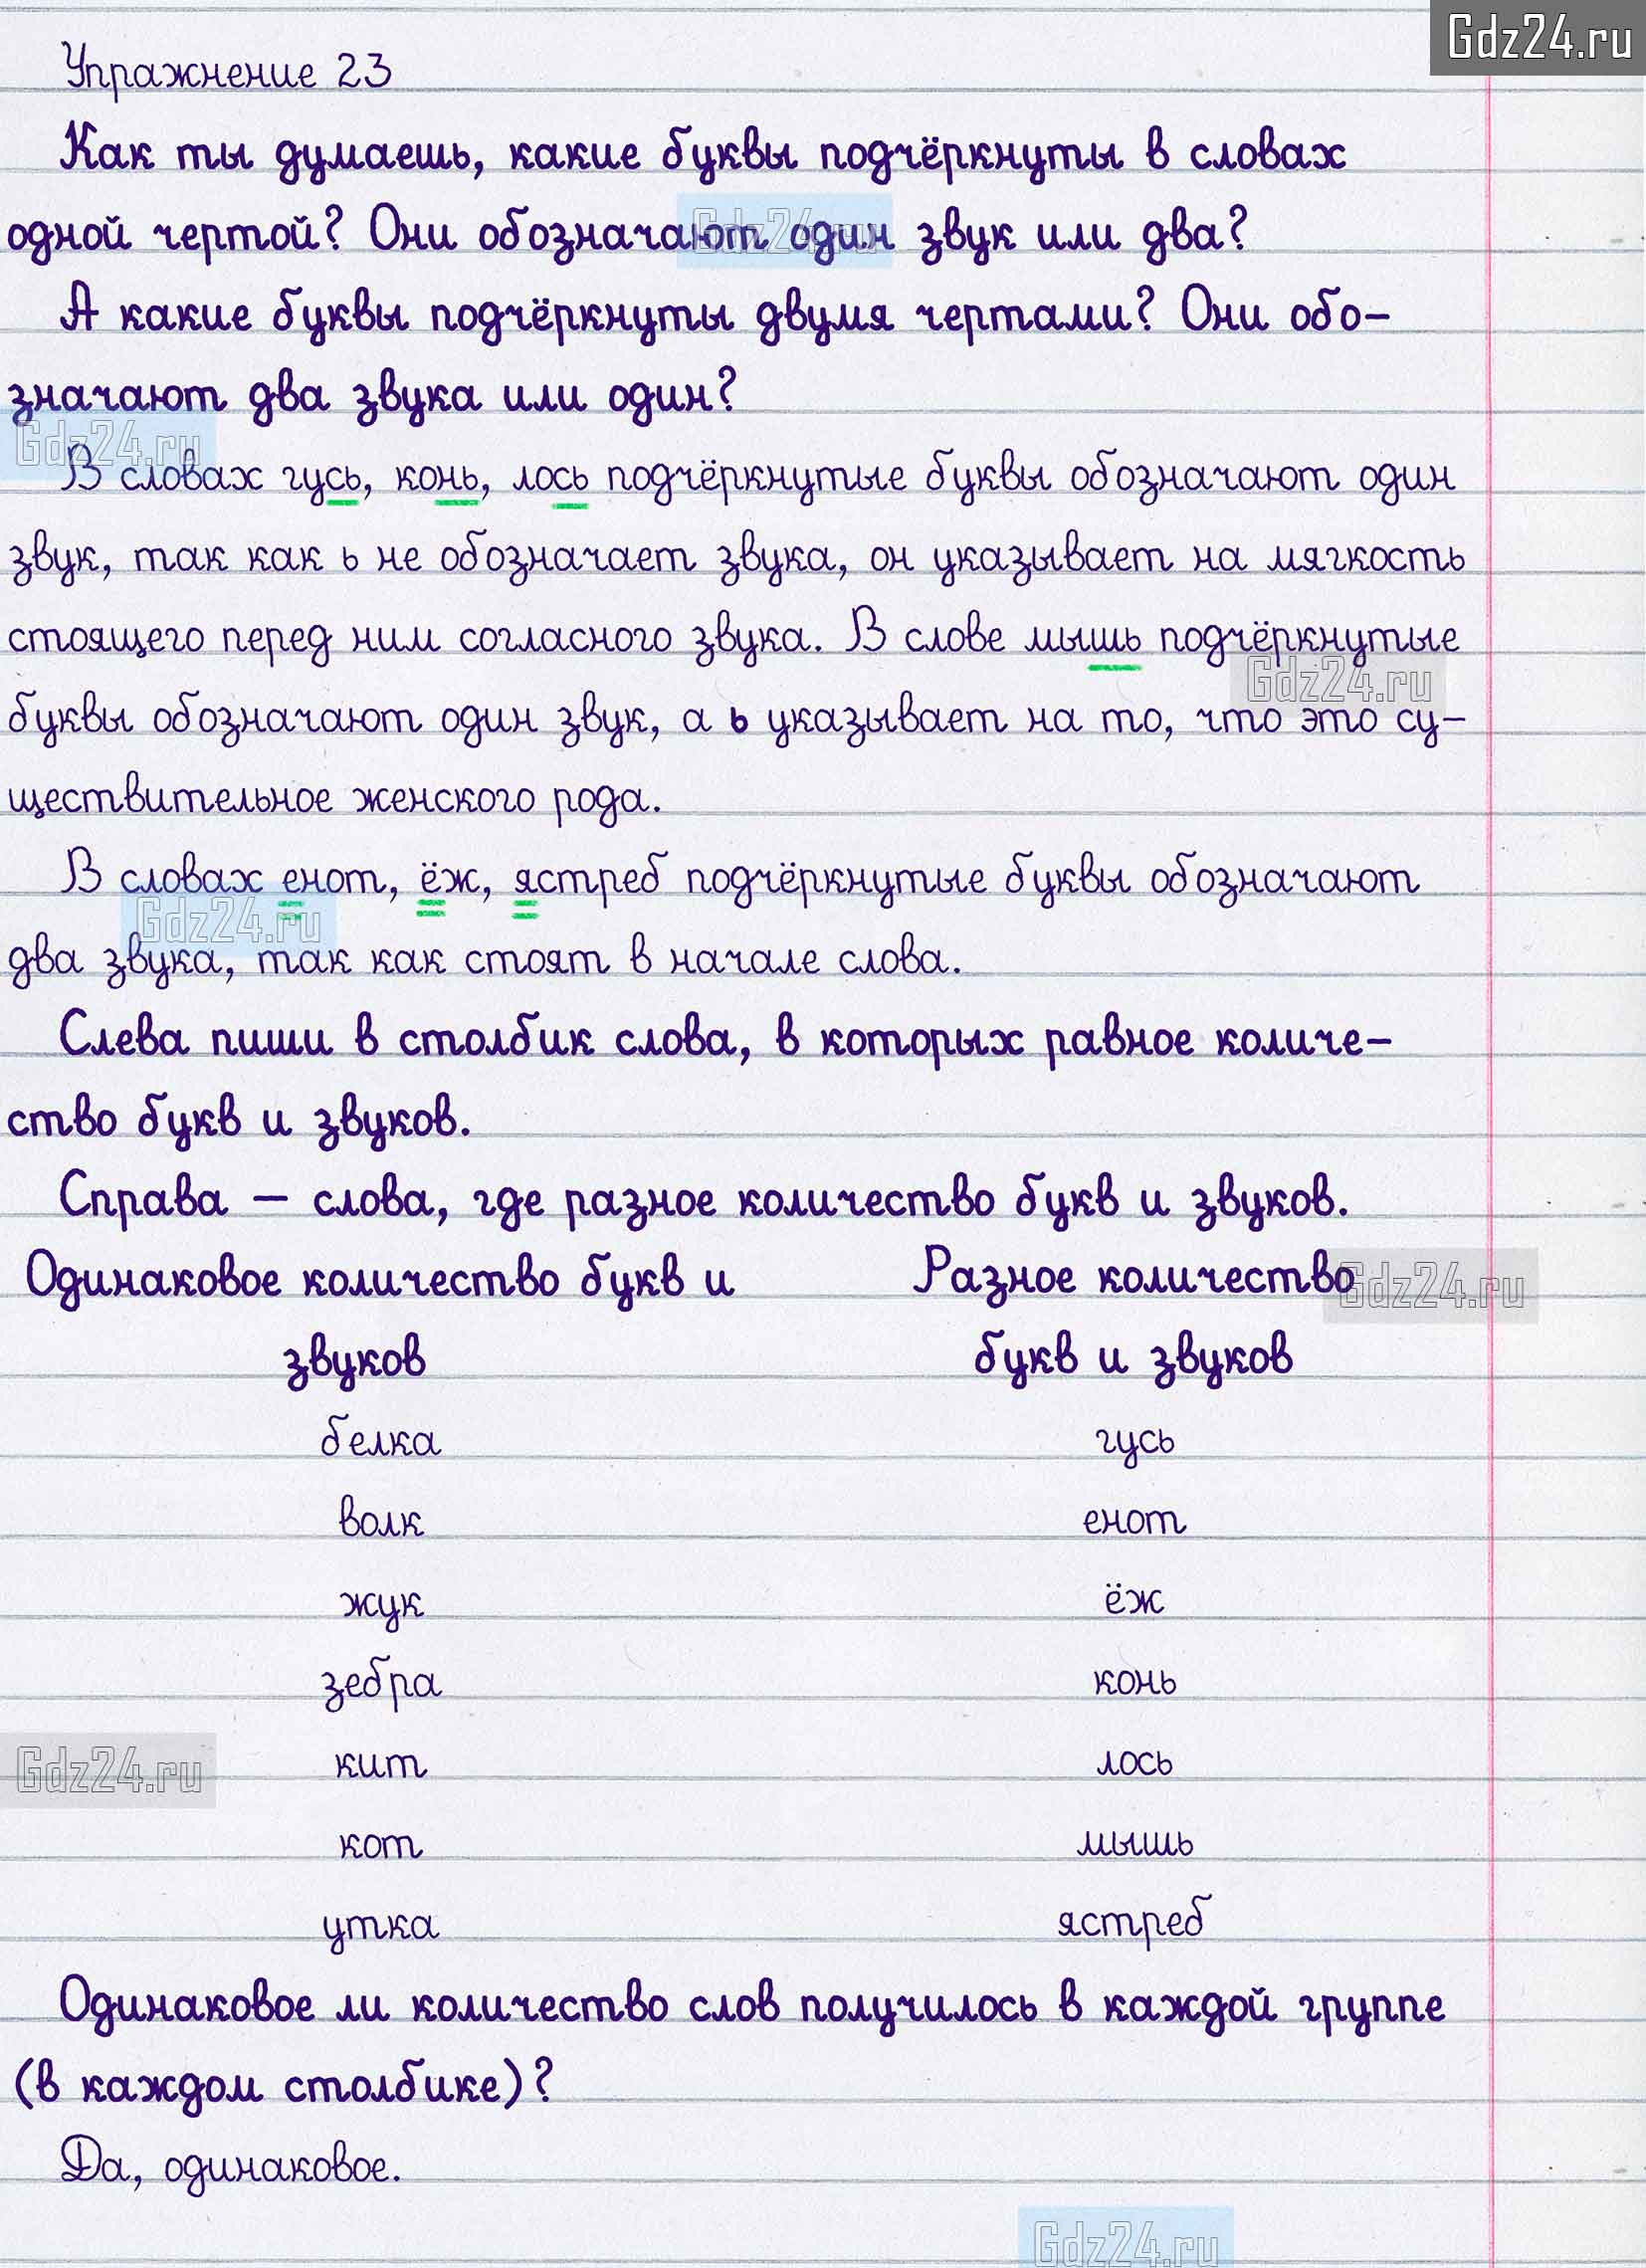 Gdz24.ru
Упражнение 23
Как ты думаешь, какие буквы подчёркнуты в словах
одной чертой? Они обозначают один звук или два?
Gdz24.ru
А какие буквы подчёркнуты двумя чертами? Они обо-
значают два звука или один?
Gdz24.ru
В словах гусь, конь, лось подчёркнутые буквы обозначают один
звук, так как ь не обозначает звука, он указывает на мягкость
стоящего перед ним согласного звука. В слове мышь подчёркнутые
Gdz24.ru
буквы обозначают один звук, а ь указывает на то, что это су-
ществительное женского рода.
В словах енот, ёж, ястреб подчёркнутые буквы обозначают
Gdz24.ru
два звука, так как стоят в начале слова.
Слева пиши в столбик слова, в которых равное количе-
ство букв и звуков.
Справа – слова, где разное количество букв и звуков.
Одинаковое количество букв и
звуков
Разное количество
букв и звуков
Gdz24.ru
белка гусь
волк енот
жук ёж
зебра конь
кит лось
Gdz24.ru
кот мышь
утка ястреб
Одинаковое ли количество слов получилось в каждой группе
(в каждом столбике)?
Да, одинаковое.
Gdz24.ru